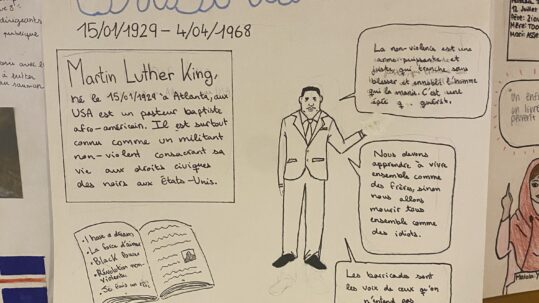 15/01/1929 - 4/04/1968
Martin Luther King,
né le 15/01/1929 à Atlanta, aux
USA est un pasteur baptiste
afro-américain. Il est surtout
connu comme un militant
non-violent consacrant sa
vie aux droits civiques
des noirs aux États-Unis.
La non-violence est une
arme puissante et
juste, qui tranche sans
blesser et ennoblit l'homme
qui la manie. C'est une
épée qui guérit.
Nous devons
apprendre à vivre
ensemble comme
des frères, sinon
nous allons
mourir tous
ensemble comme
des idiots.
Les barricades sont
les voix de ceux qu'on
n'entend pas
• I have a dream
• La force d'aimer
• Black Power
• Révolution non-
violente
12 Juillet
Un enf
un liv
peuvent